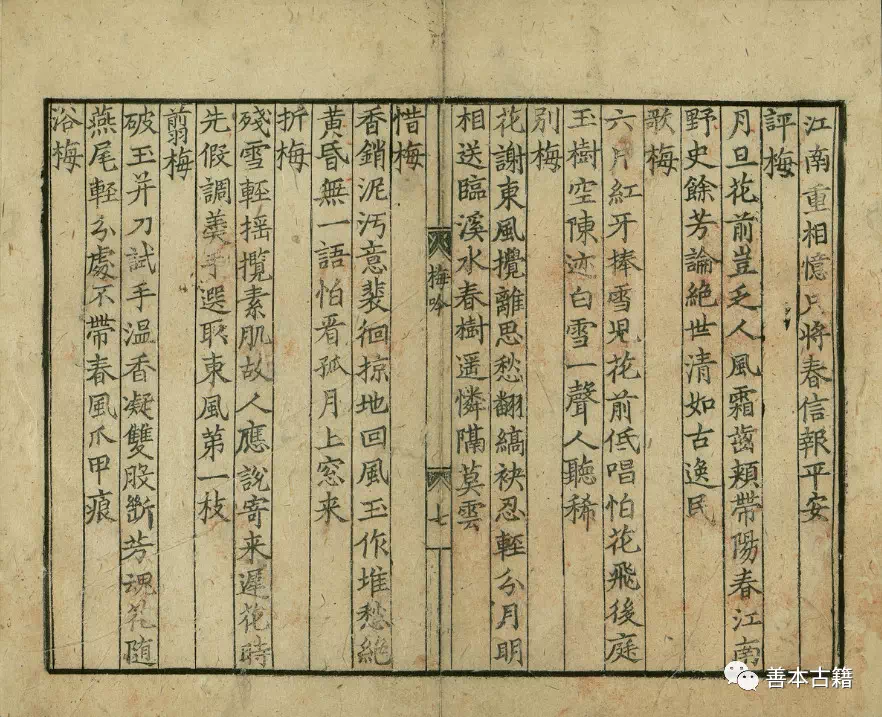 江南重相憶只將春信報平安
評梅
月旦花前豈乏人風霜齒頰帶陽春江南
野史餘芳論絕世清如古逸民
歌梅
六片紅牙捧雪児花前低唱怕花飛後庭
玉樹空陳迹白雪一聲人聽稀
別梅
花謝東風攪離思愁翻縞袂忍輕分月明
相送臨溪水春樹遥憐隔莫雲
惜梅
梅吟
七
香銷泥汚意裴徊掠地回風玉作堆愁絶
黄昏無一語怕看孤月上窓来
折梅
殘雪輕揺攬素肌故人應說寄来遲花時
先假調羹手選取東風第一枝
剪梅
破玉并刀試手温香凝雙股斷芳魂花随
燕尾輕分處不帶春風爪甲痕
浴梅
善本古籍